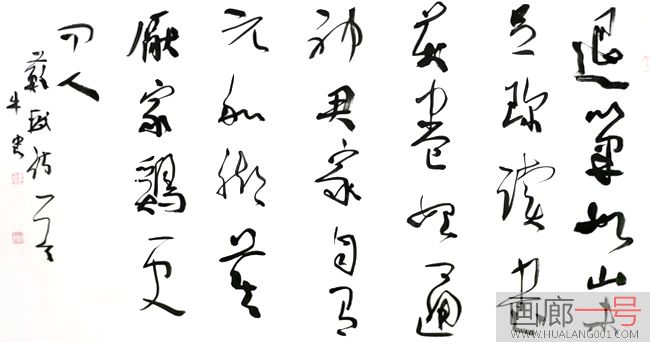 退筆如山未
足珍讀書
萬卷始通
神君家自有
元和脚莫
厭家鷄更
問人
蘇軾詩一首
画廊一号
WWW.HUALANG001.COM